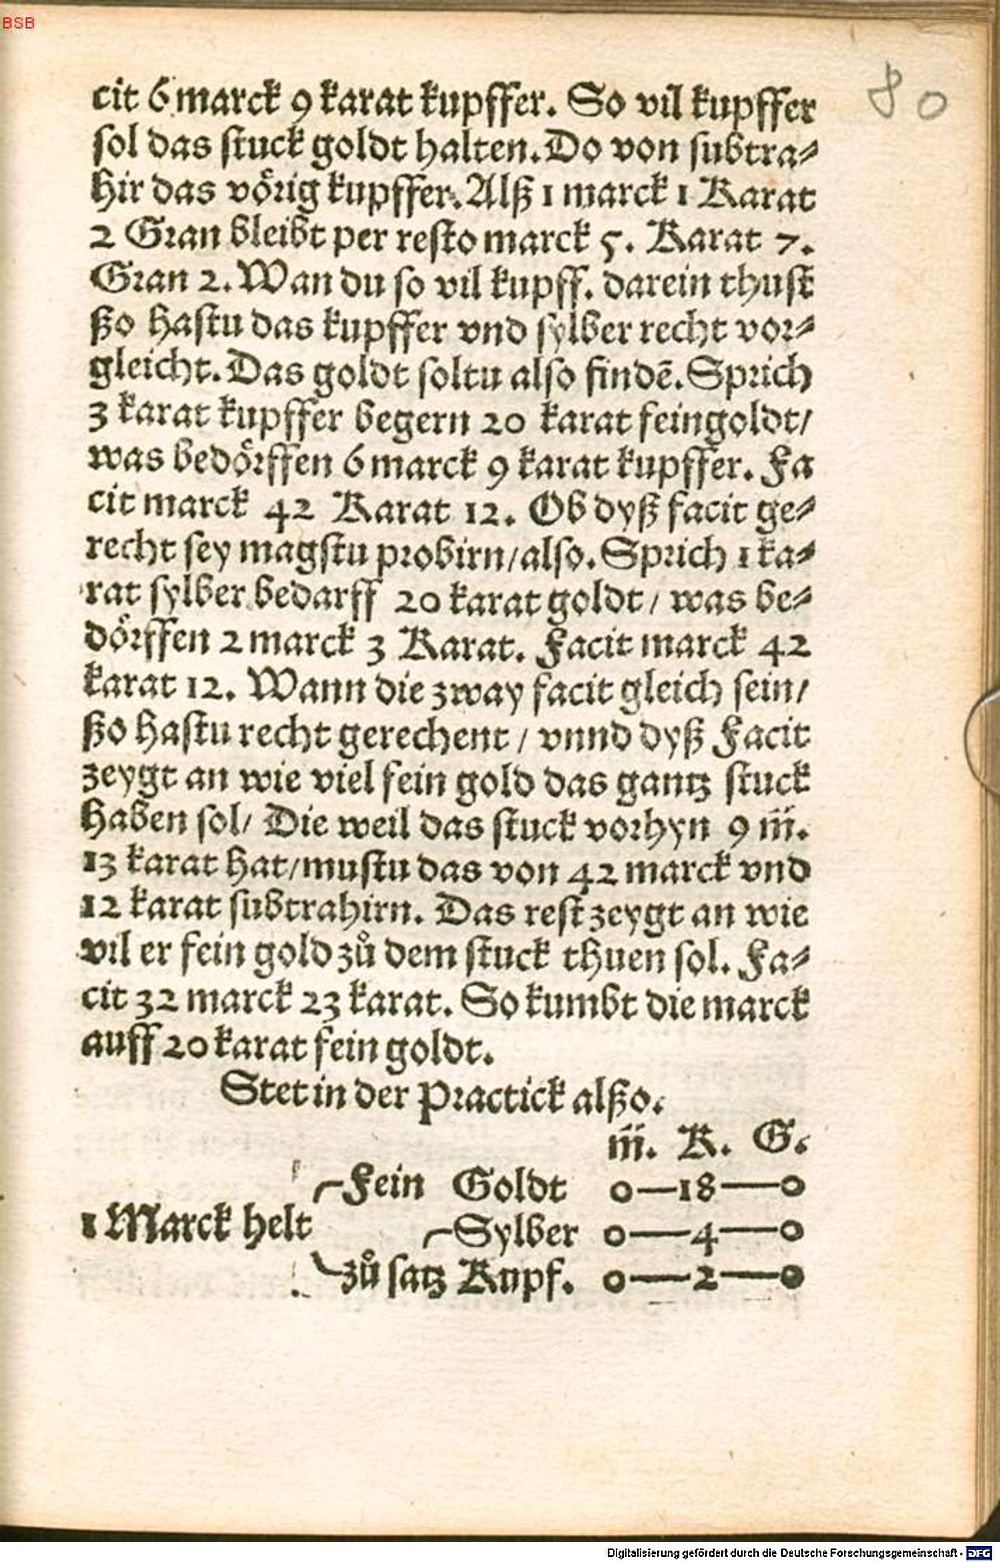 BSB
80
cit 6 marck 9 karat kupffer. So vil kupffer
sol das stuck goldt halten. Do von subtra⸗
hir das vörig kupffer. Alß 1 marck 1 Karat
2 Gran bleibt per resto marck 5. Karat 7.
Gran 2. Wan du so vil kupff. darein thust
ßo hastu das kupffer vnd sylber recht vor⸗
gleicht. Das goldt soltu also findē. Sprich
3 karat kupffer begern 20 karat feingoldt/
was bedörffen 6 marck 9 karat kupffer. Fa
cit marck 42 Karat 12. Ob dyß facit ge⸗
recht sey magstu probirn/also. Sprich 1 ka⸗
rat sylber bedarff 20 karat goldt/ was be⸗
dörffen 2 marck 3 Karat. Facit marck 42
karat 12. Wann die zway facit gleich sein/
ßo hastu recht gerechent / vnnd dyß Facit
zeygt an wie viel fein gold das gantz stuck
haben sol/ Die weil das stuck vorhyn 9 m̄.
13 karat hat/mustu das von 42 marck vnd
12 karat subtrahirn. Das rest zeygt an wie
vil er fein gold zů dem stuck thuen sol. Fa⸗
cit 32 marck 23 karat. So kumbt die marck
auff 20 karat fein goldt.
Stet in der Practick alßo.
m̄. K. G.
Fein Goldt 0—18—0
1 Marck helt Sylber 0—4—0
zů satz Kupf. 0—2—0
Digitalisierung gefördert durch die Deutsche Forschungsgemeinschaft - DFG